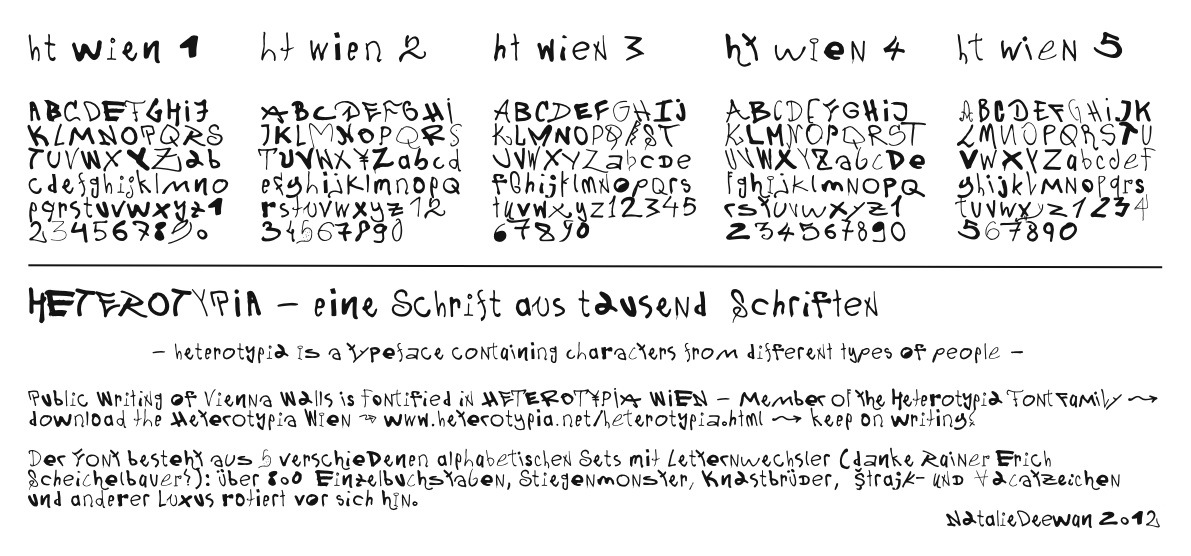 ht wien 1
ABCDEFGHiJ
KLMNOPQRS
TUVWXYZab
cdefghijklmno
pqrstuvwxyz1
234567890
ht wien 2
ABCDEFGHI
JKLMNOPQRS
TUVWXYZabcd
efghijklmnopQ
rstuvwxyz12
34567890
ht wieN 3
ABCDEFGHIJ
KLMNOPQRST
UVWXYZabcDe
fGhijklmNopQrs
tuvwxyz12345
67890
ht wieN 4
ABCDEFGHiJ
KLMNOPQRST
UVWXYZabcDe
fghijklmNOPQ
rsTuvwxyz1
234567890
ht wieN 5
ABCDEFGHiJK
LMNOPQRSTU
VWXYZabcdef
ghijklMNOPqrs
tuvwxyz1234
567890
HETEROTYPiA – eine Schrift aus tausend SchrifteN
– heterotypia is a typeface containing characters from different types of people –
Public Writing of Vienna Walls is fontified in HETEROTYPIA WiEN – Member of the Heterotypia Font Family →
download the Heterotypia Wien → www.heterotypia.net/heterotypia.html → keep on writing!
Der Font besteht aus 5 verschieDenen alphabetischen Sets mit Letternwechsler (danke Rainer Erich
Scheichelbauer!): über 800 Einzelbuchstaben, Stiegenmonster, Knastbrüder, Strajk- und Vacatzeichen
und anderer Luxus rotiert vor sich hin.
NatalieDeewan 2012